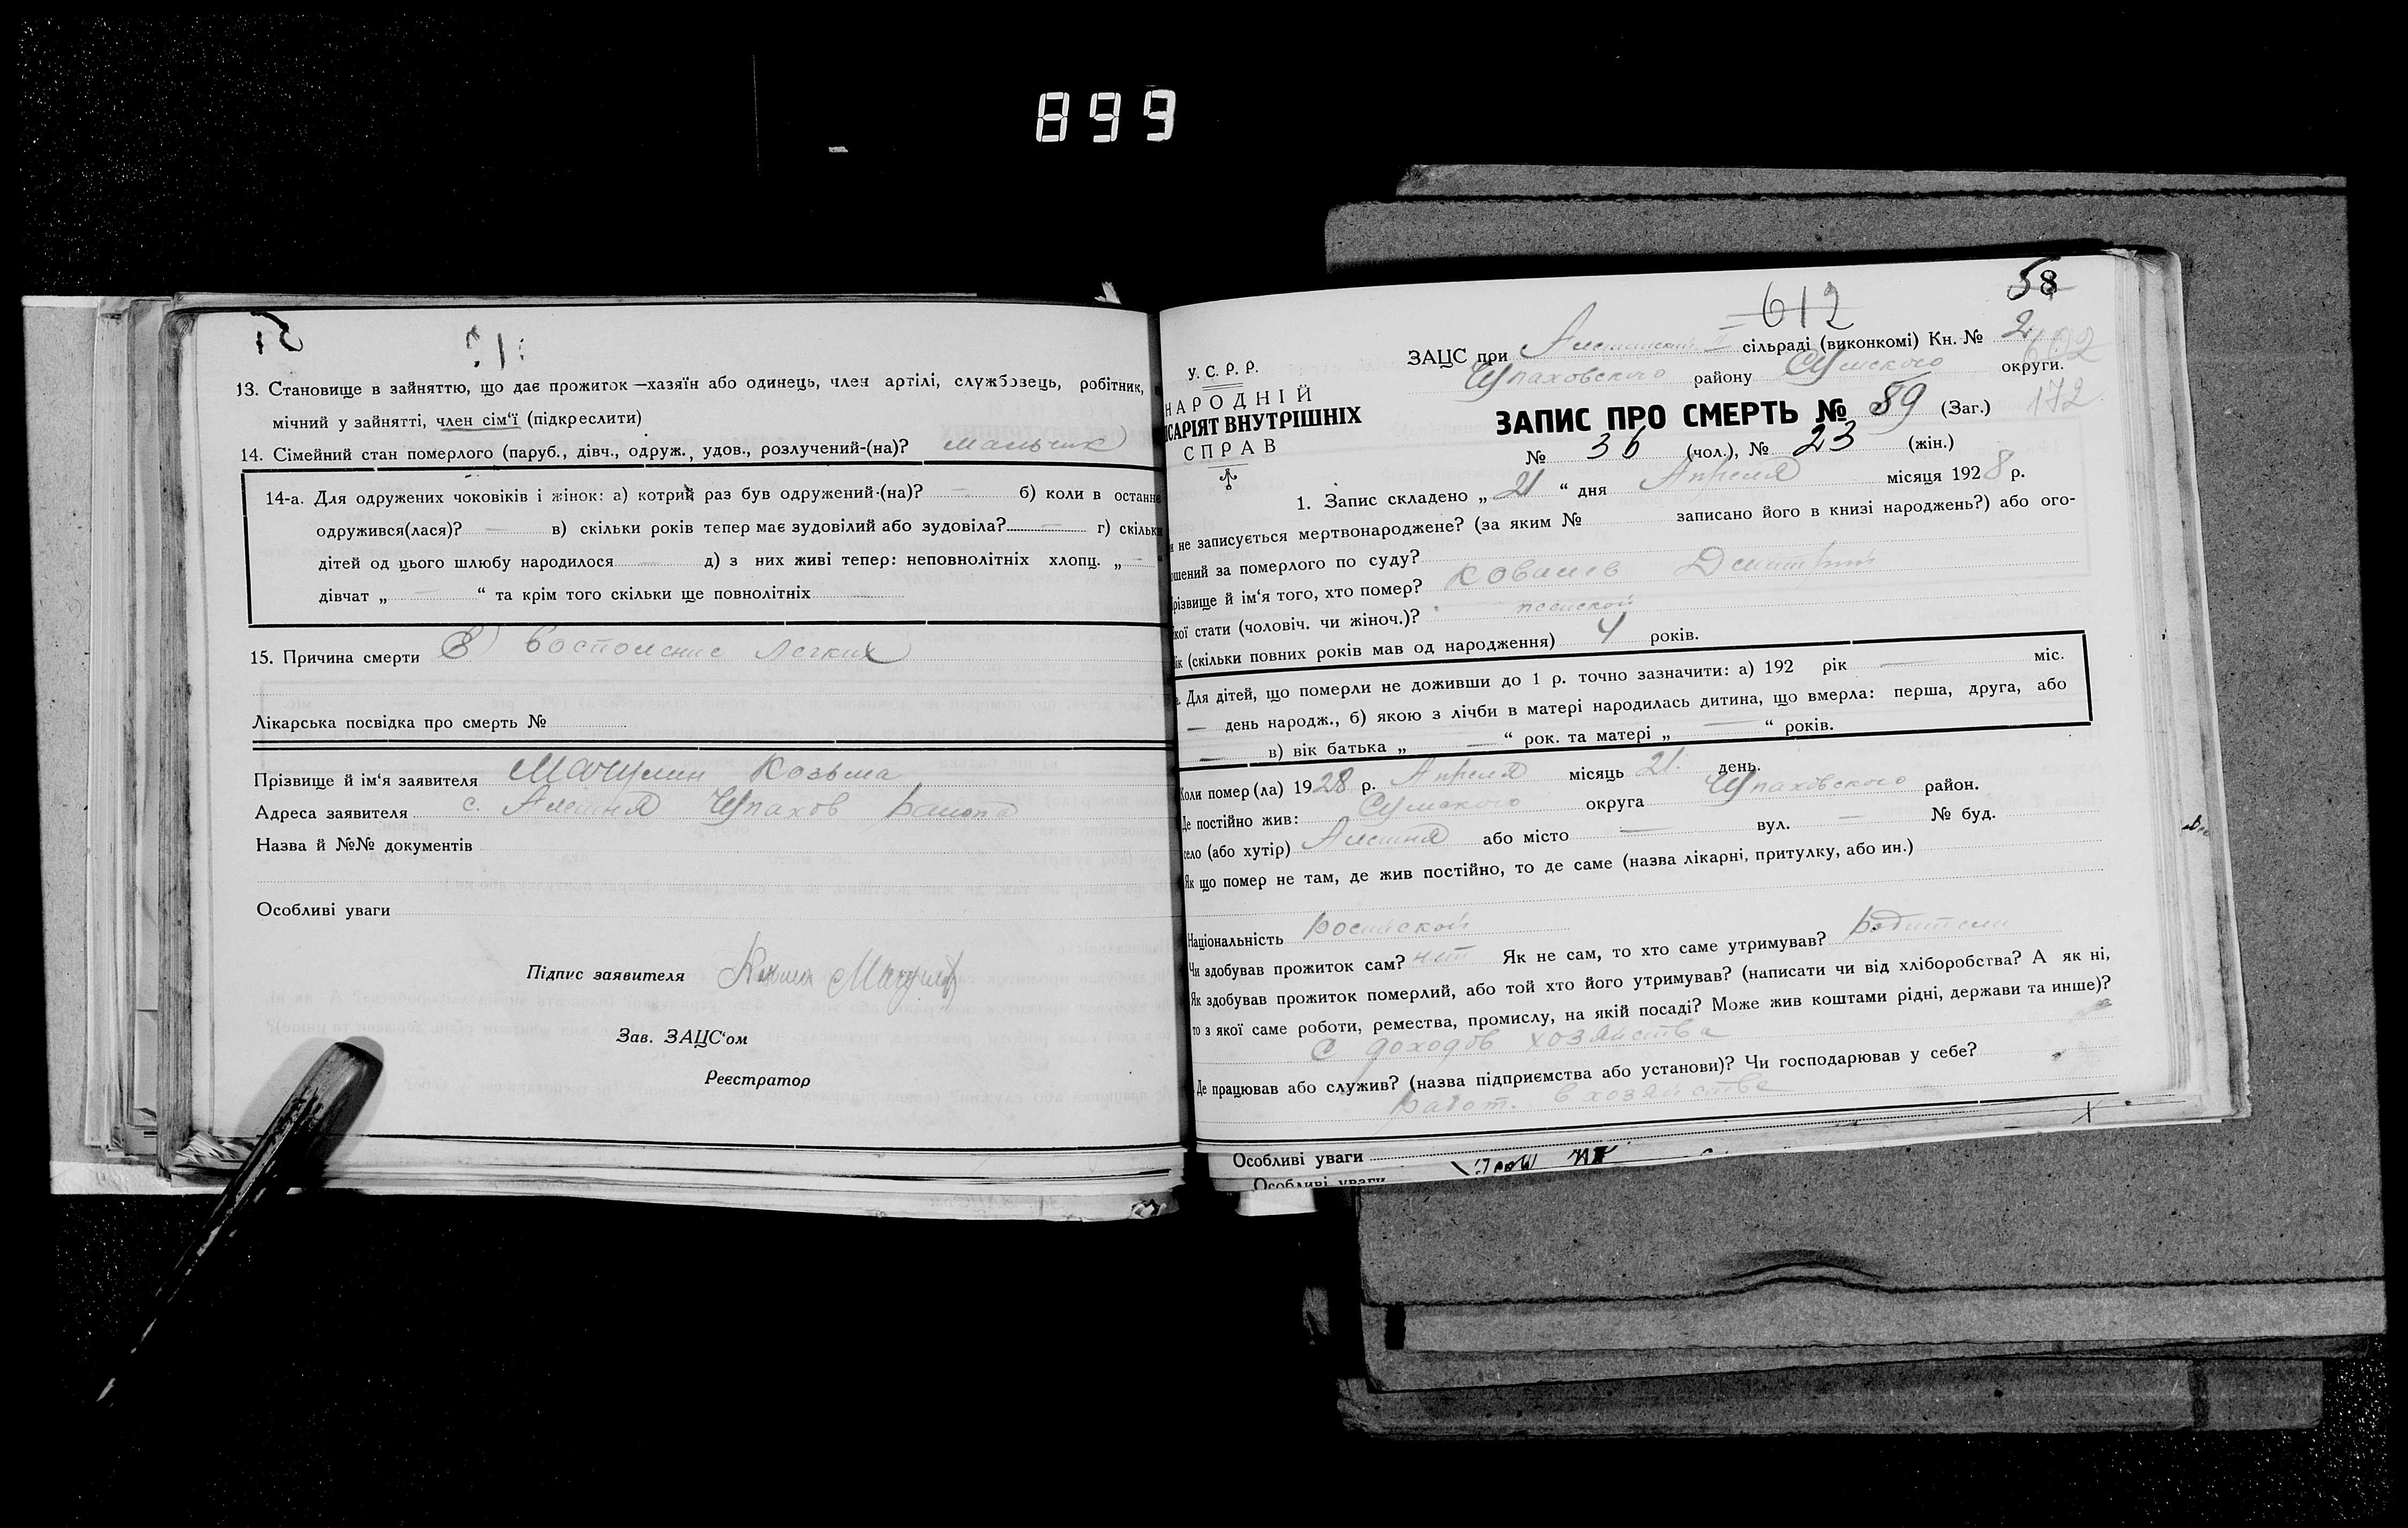 899
13. Становище в зайняттю, що дає прожиток—хазяїн або одинець, член артілі, службовець, робітник,
мічний у зайнятті, член сім'ї (підкреслити)
14. Сімейний стан померлого (паруб., дівч., одруж., удов., розлучений-(на)? мальчик
14-а. Для одружених чоковіків і жінок: а) котрий раз був одружений-(на)? — б) коли в останнє
одружився(лася)? — в) скільки років тепер має зудовілий або зудовіла? — г) скільки
дітей од цього шлюбу народилося — д) з них живі тепер: неповнолітніх хлопц. „ —
дівчат „ — “ та крім того скільки ще повнолітніх
15. Причина смерти Легких
Лікарська посвідка про смерть №
Прізвище й ім'я заявителя Мачулин Козьма
Адреса заявителя с. Алешня Чупахов района
Назва й №№ документів
Особливі уваги
Підпис заявителя
Зав. ЗАЦС'ом
Реєстратор
58
612
У. С. Р. Р.
НАРОДНІЙ
ІСАРІЯТ ВНУТРІШНІХ
СПРАВ
ЗАЦС при Алешанской II сільраді (виконкомі) Кн. № 2
602
Чупаховского району Сумского округи.
ЗАПИС ПРО СМЕРТЬ № 59 (Заг.) 172
№ 36 (чол.), № 23 (жін.)
1. Запис складено „ 21 “ дня Апреля місяця 1928 р.
и не записується мертвонароджене? (за яким № записано його в книзі народжень?) або ого-
ошений за померлого по суду?
різвище й ім'я того, хто помер? Ковалев Дмитрий
кої стати (чоловіч. чи жіноч.)?
ік (скільки повних років мав од народження) 4 років.
Для дітей, що померли не доживши до 1 р. точно зазначити: а) 192 рік — міс.
— день народж., б) якою з лічби в матері народилась дитина, що вмерла: перша, друга, або
— в) вік батька „ — “ рок. та матері „ — “ років.
Коли помер(ла) 1928 р. Апреля місяць 21. день.
Де постійно жив: Сумского округа Чупаховского район.
село (або хутір) Алешня або місто — вул. — № буд.
Як що помер не там, де жив постійно, то де саме (назва лікарні, притулку, або ин.)
Національність
Чи здобував прожиток сам? нет Як не сам, то хто саме утримував? Родители
Як здобував прожиток померлий, або той хто його утримував? (написати чи від хліборобства? А як ні,
то з якої саме роботи, ремества, промислу, на якій посаді? Може жив коштами рідні, держави та инше)?
С доходов хозяйства
Де працював або служив? (назва підприємства або установи)? Чи господарював у себе?
Работ. в хозяйстве
Особливі уваги
Особливі уваги